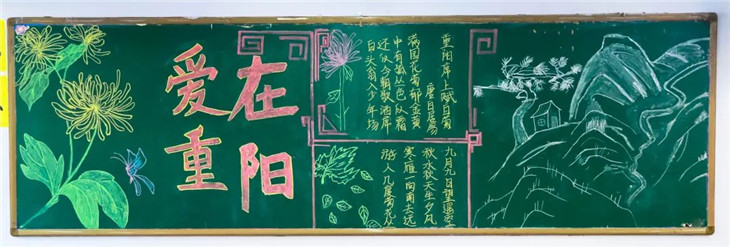 爱在
重阳
重阳席上赋白菊
唐白居易
满园花菊郁金黄
中有孤丛色似霜
还似今朝歌酒席
白头翁入少年场
九月九日望遥空
秋水秋天生夕风
寒雁一向南去远
游人几度菊花丛